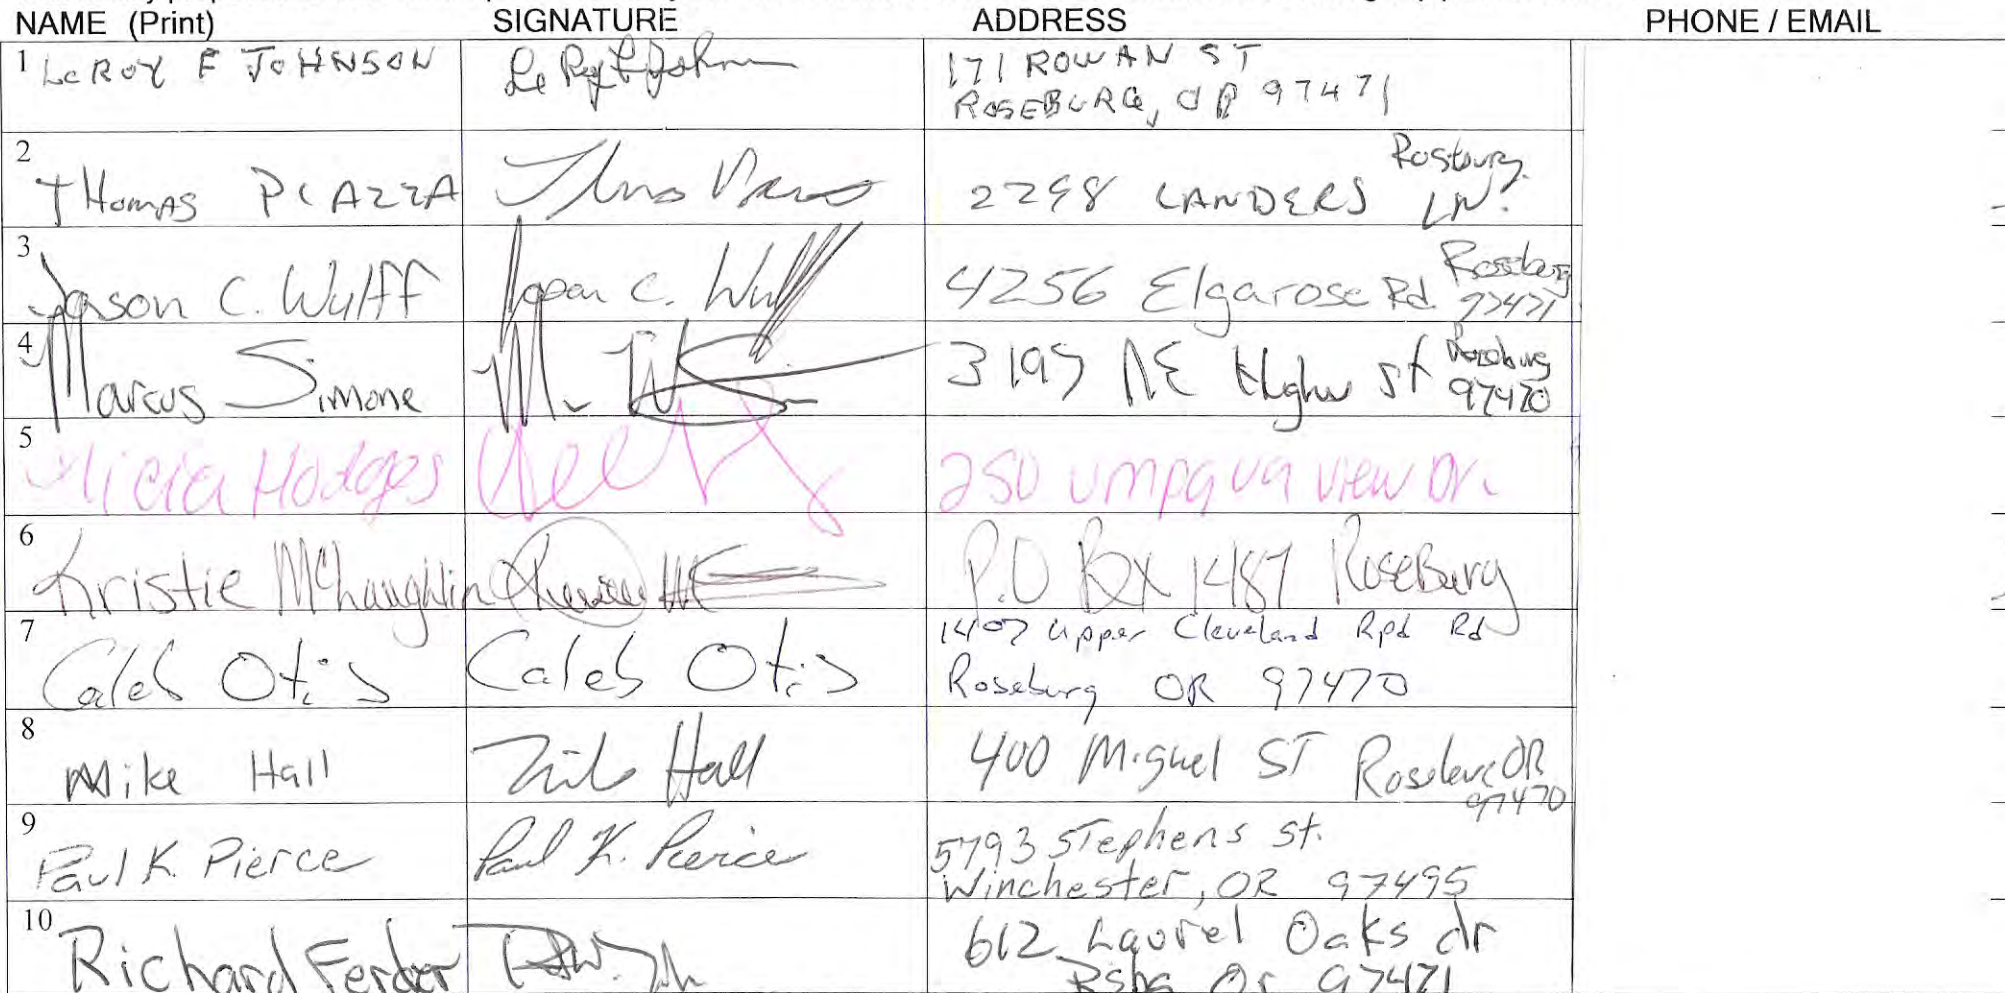 NAME (Print) SIGNATURE ADDRESS PHONE / EMAIL
1 LeROY F JOHNSON Le Roy F Johnson 171 ROWAN ST
ROSEBURG, OR 97471
2 Roseburg
THomas PIAZZA 2298 LANDERS LN.
3 Jason C. Wulff Jason C. Wulff 4256 Elgarose Rd Roseburg
97471
4 Marcus Simone NE st Roseburg
97470
5 Alicia Hodges 250 Umpqua View Dr.
6 Kristie McLaughlin P.O Box 1487 RoseBurg
7 Caleb Otis Caleb Otis 1407 Upper Cleveland Rpd Rd
Roseburg OR 97470
8 Mike Hall Mike Hall 400 Miguel ST Roseburg OR
97470
9 Paul K. Pierce Paul K. Pierce 5793 Stephens St.
Winchester, OR 97495
10 Richard Ferder 612 Laurel Oaks dr
Rsbg Or 97471